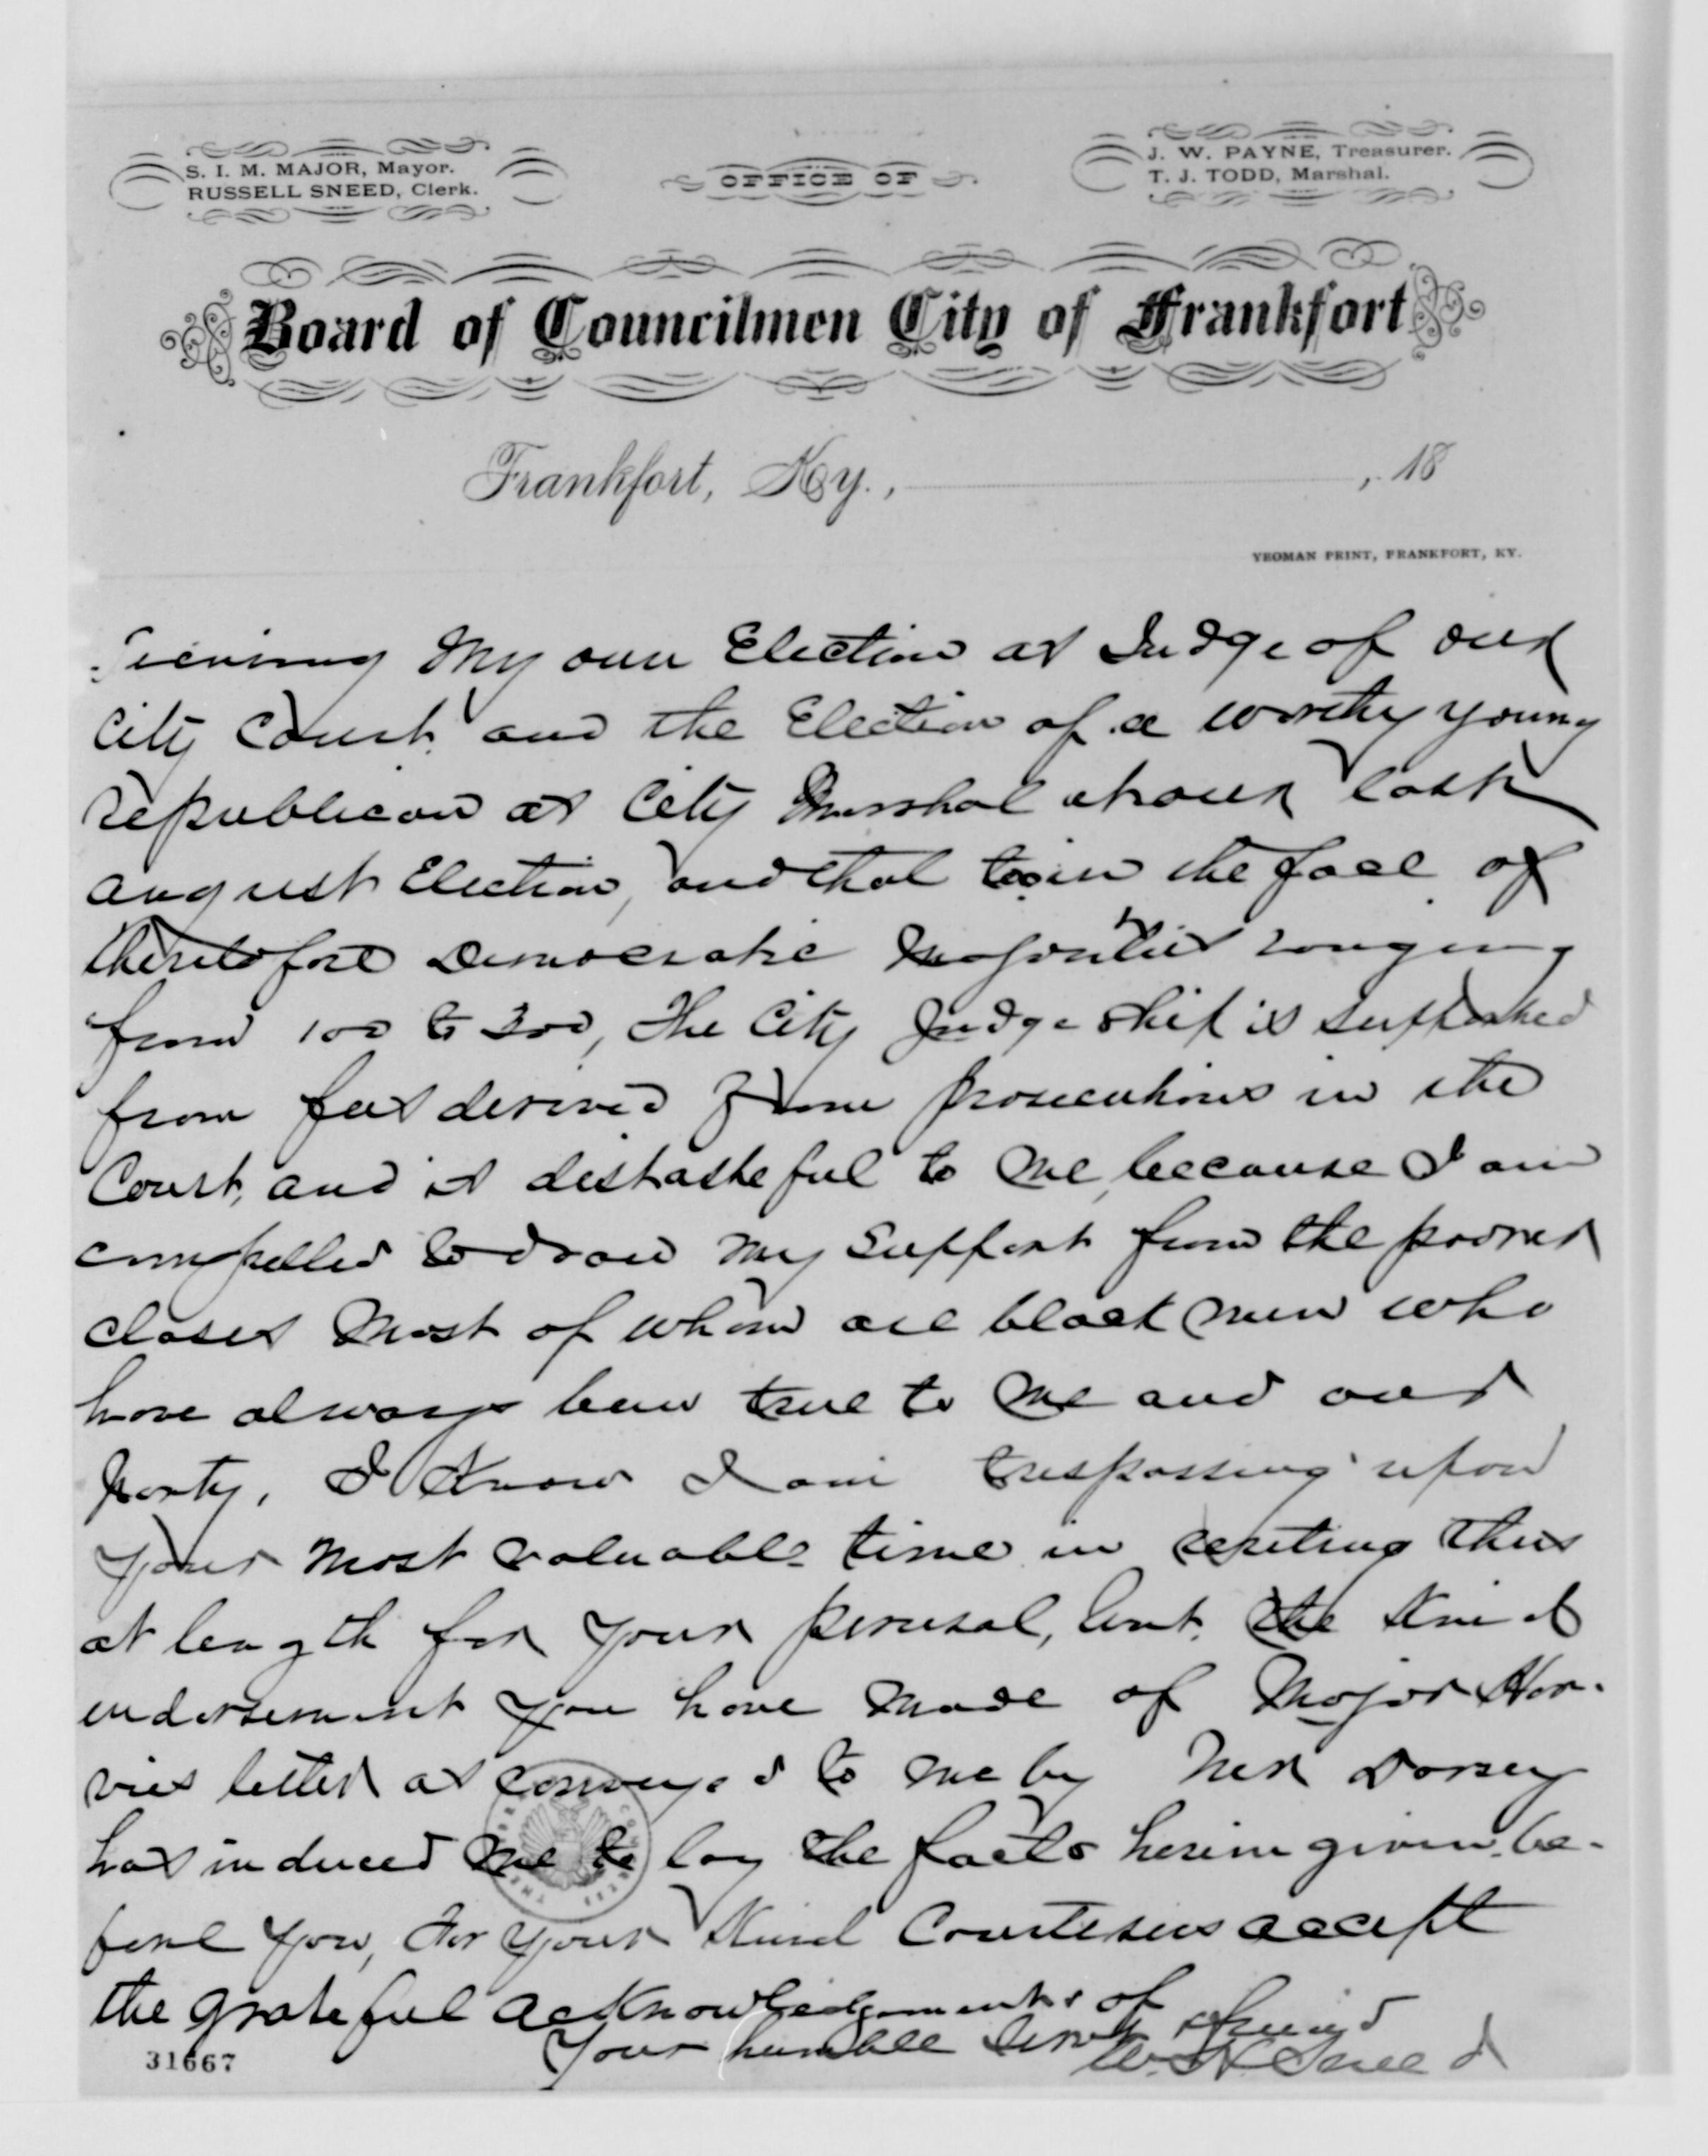 S. I. M. MAJOR, Mayor.
RUSSELL SNEED, Clerk.
OFFICE OF
J. W. PAYNE, Treasurer.
T. J. TODD, Marshal.
Board of Councilmen City of Frankfort
Frankfort, Ky., , 18
YEOMAN PRINT, FRANKFORT, KY.
my own Election as Judge of our
City Court, and the Election of a worthy young
republican as City Marshal at our last
august Election, and that too in the face of
theretofore Democratic Majorities ranging
from 100 to 300, The City Judge ship is supported
from fees derived from prosecutions in the
Court, and is distasteful to me, because I am
compelled to draw my support from the poorer
classes most of whom are black men who
have always been true to me and our
party, I Know I am trespassing upon
your most valuable time in writing thus
at length for your perusal, but the Kind
endorsement you have made of Major Har-
vies letter as conveyed to me by Dorsey
has induced me to lay the facts herein given be-
fore you, For your Kind Courtesies accept
the grateful acknowledgements of
Your humble Servt & friend
W. H. Sneed
31667